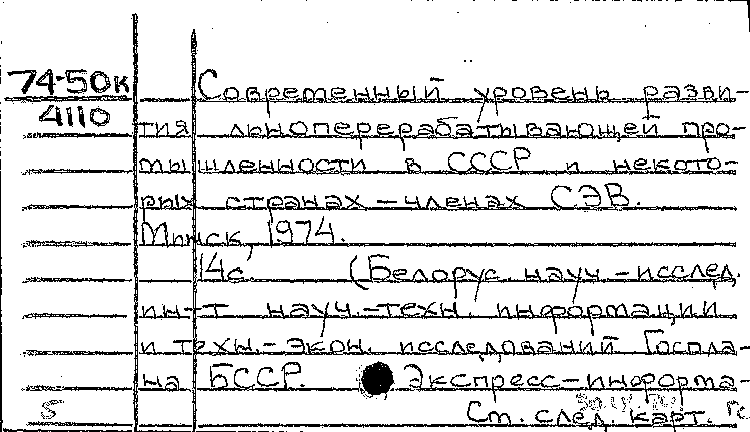 74-50к
4110
Современный уровень разви-
тия льноперерабатывающей про-
мышленности в СССР и некото-
рых странах - членах СЭВ.
Минск, 1974.
14с. (Белорус. науч-исслед.
ин-т науч.-техн. информации
и техн.-экон. исследований Госпла-
на БССР. Экспресс-информа-
5 См. след. карт.